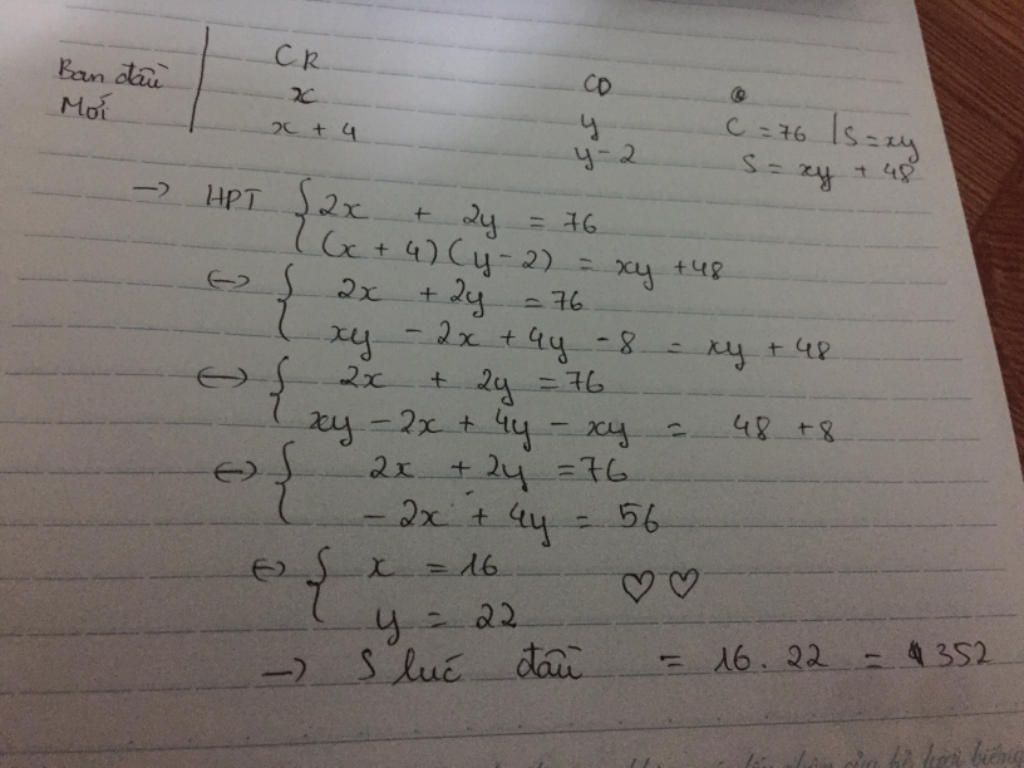 CR CD
Ban đầu x y C = 76 | S = xy
Mới x + 4 y - 2 S = xy + 48
→ HPT { 2x + 2y = 76
(x + 4)(y - 2) = xy + 48
⇔ { 2x + 2y = 76
xy - 2x + 4y - 8 = xy + 48
⇔ { 2x + 2y = 76
xy - 2x + 4y - xy = 48 + 8
⇔ { 2x + 2y = 76
- 2x + 4y = 56
⇔ { x = 16
y = 22 ♡ ♡
→ S lúc đầu = 16 . 22 = 352